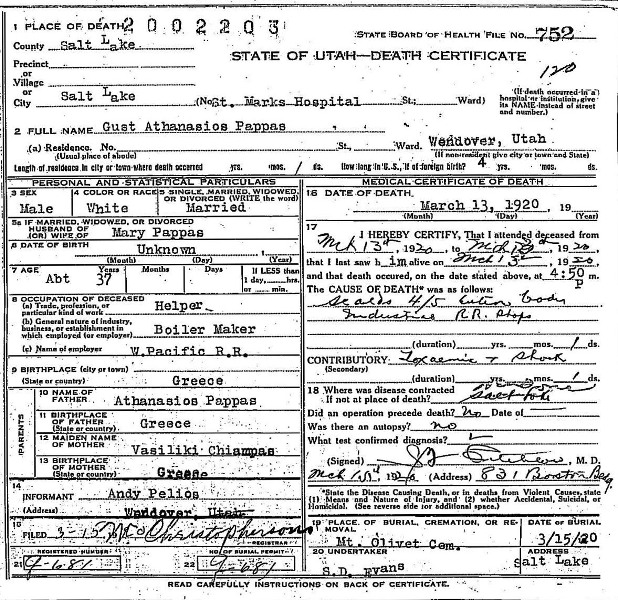 1 PLACE OF DEATH 2002203
STATE BOARD OF HEALTH FILE NO. 752
County Salt Lake
STATE OF UTAH—DEATH CERTIFICATE
Precinct
or
Village
120
or
City Salt Lake (No. St. Marks Hospital St.; Ward)
(If death occurred in a hospital or institution, give its NAME instead of street and number.)
2 FULL NAME Gust Athanasios Pappas
(a) Residence. No. St., Ward. Wendover, Utah
(Usual place of abode) (If non-resident give city or town and State)
Length of residence in city or town where death occurred yrs. mos. 1 ds. How long in U.S., if of foreign birth? 4 yrs. mos. ds.
PERSONAL AND STATISTICAL PARTICULARS
3 SEX Male
4 COLOR OR RACE White
5 SINGLE, MARRIED, WIDOWED, OR DIVORCED (WRITE the word) Married
5a IF MARRIED, WIDOWED, OR DIVORCED
HUSBAND OF
(OR) WIFE OF Mary Pappas
6 DATE OF BIRTH Unknown
(Month) (Day) (Year)
7 AGE Abt 37 Years Months Days If LESS than 1 day,....hrs. or.....min.
8 OCCUPATION OF DECEASED
(a) Trade, profession, or particular kind of work Helper
(b) General nature of industry, business, or establishment in which employed (or employer) Boiler Maker
(c) Name of employer W.Pacific R.R.
9 BIRTHPLACE (city or town)
(State or country) Greece
PARENTS
10 NAME OF FATHER Athanasios Pappas
11 BIRTHPLACE OF FATHER (State or country) Greece
12 MAIDEN NAME OF MOTHER Vasiliki Chiampas
13 BIRTHPLACE OF MOTHER (State or country) Greece
14
INFORMANT Andy Pelios
(Address) Wendover Utah
15
FILED 3-15 Christopherson
REGISTRAR
REGISTERED NUMBER NO. OF BURIAL PERMIT
21 9-681 22 9-681
MEDICAL CERTIFICATE OF DEATH
16 DATE OF DEATH
March 13, 1920 19
(Month) (Day) (Year)
17
I HEREBY CERTIFY, That I attended deceased from
Mch 13th, 1920, to Mch 13th 1920
that I last saw him alive on Mch 13th 1920
and that death occured, on the date stated above, at 4:50 P
The CAUSE OF DEATH* was as follows:
Scalds 4/5 Entire body
Industrial R.R. Shops
(duration) yrs. mos. 1 ds.
CONTRIBUTORY Toxaemia + Shock
(Secondary)
(duration) yrs. mos. 1 ds.
18 Where was disease contracted
If not at place of death?
Did an operation precede death? No Date of
Was there an autopsy? no
What test confirmed diagnosis?
(Signed) M. D.
Mch 1920 (Address) 831 Boston Bldg
*State the Disease Causing Death, or in deaths from Violent Causes, state (1) Means and Nature of Injury, and (2) whether Accidental, Suicidal, or Homicidal. (See reverse side for additional space.)
19 PLACE OF BURIAL, CREMATION, OR REMOVAL
Mt. Olivet Cem.
DATE OF BURIAL
3/15/20
20 UNDERTAKER
S.D. Evans
ADDRESS
Salt Lake
READ CAREFULLY INSTRUCTIONS ON BACK OF CERTIFICATE.